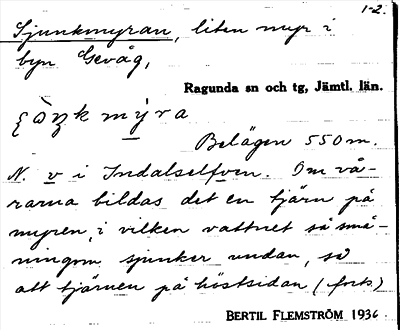 1-2.
Sjunkmyran, liten myr i
byn Gevåg,
Ragunda sn och tg, Jämtl. län.
mỳra
Belägen 550 m.
N. v i Indalselfven. Om vå-
rarna bildas det en tjärn på
myren, i vilken vattnet så små-
ningom sjunker undan, så
att tjärnen på höstsidan (forts.)
BERTIL FLEMSTRÖM 1936